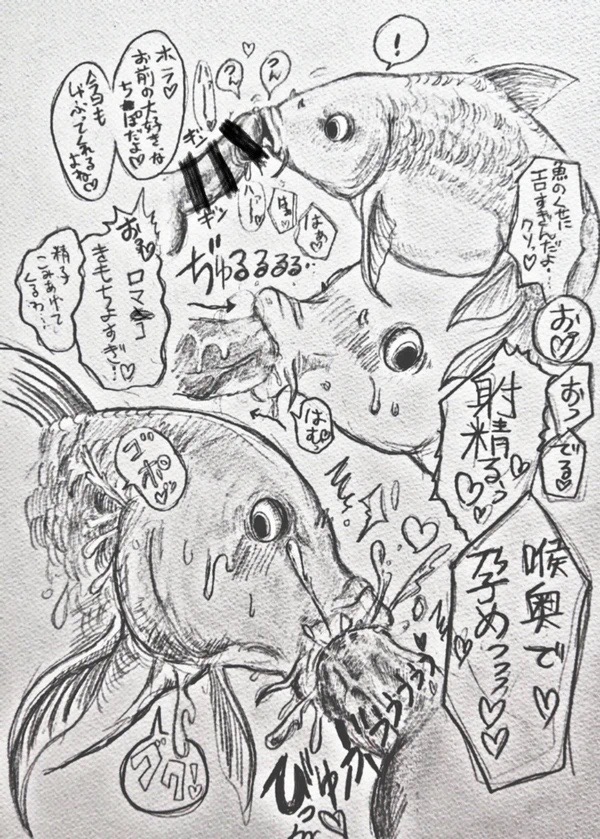 !
ホラ♡
お前の大好きな
ち●ぽだよ♡
今日も
しゃぶってくれる
よね♡
つん
つん
ギンッ
ギン
はぁ
はぁ
魚のくせに
エロすぎんだよ…
クソッ♡
ぢゅるるるる…
おぉ♡
きもちよすぎ…!♡
精子
こみあげて
くるわ…
お♡
おっ
でる♡
はむっ
射精るっ
♡♡
ゴポ♡
喉奥で♡
孕めっ
♡♡
ゴク!
びゅ